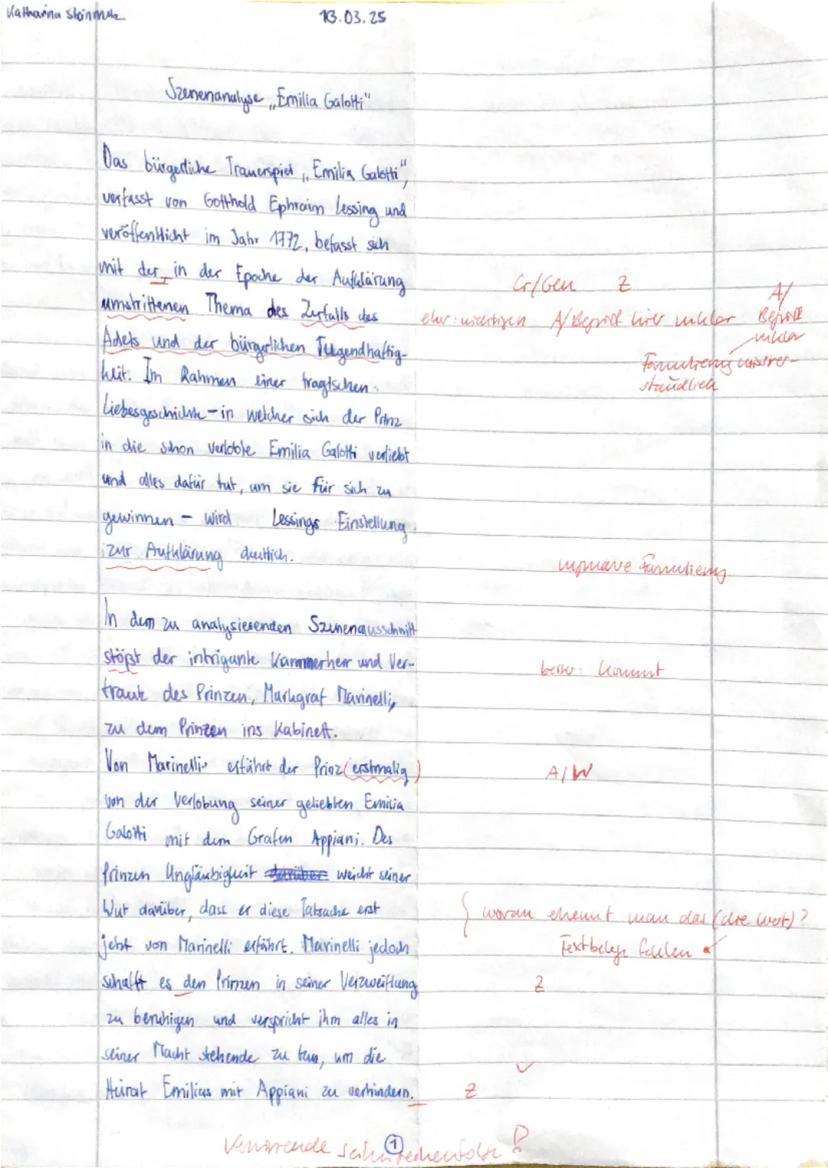 Katharina Steinmetz
13.03.25
Szenenanalyse „Emilia Galotti"
Das bürgerliche Trauerspiel „Emilia Galotti",
verfasst von Gotthold Ephraim Lessing und
veröffentlicht im Jahr 1772, befasst sich
mit der in der Epoche der Aufklärung
Gr/Gen Z
umstrittenen Thema des Zerfalls des
eher: wichtigen A/Begriff hier unklar
A/
Begriff
unklar
Adels und der bürgerlichen Tugendhaftig-
Formulierung unver-
ständlich
keit. Im Rahmen einer tragischen
Liebesgeschichte – in welcher sich der Prinz
in die schon verlobte Emilia Galotti verliebt
und alles dafür tut, um sie für sich zu
gewinnen – wird Lessings Einstellung
zur Aufklärung deutlich.
Formulierung
In dem zu analysierenden Szenenausschnitt
stößt der intrigante Kammerherr und Ver-
besser: kommt
traute des Prinzen, Markgraf Marinelli,
zu dem Prinzen ins Kabinett.
Von Marinelli erfährt der Prinz (erstmalig)
A/W
von der Verlobung seiner geliebten Emilia
Galotti mit dem Grafen Appiani. Des
Prinzen Ungläubigkeit darüber weicht seiner
Wut darüber, dass er diese Tatsache erst
woran erkennt man das (die Wut)?
jetzt von Marinelli erfährt. Marinelli jedoch
Textbelege fehlen
schafft es den Prinzen in seiner Verzweiflung
Z
zu beruhigen und verspricht ihm alles in
seiner Macht stehende zu tun, um die
Heirat Emilias mit Appiani zu verhindern.
Z
1
Verwirrende Seitenreihenfolge!